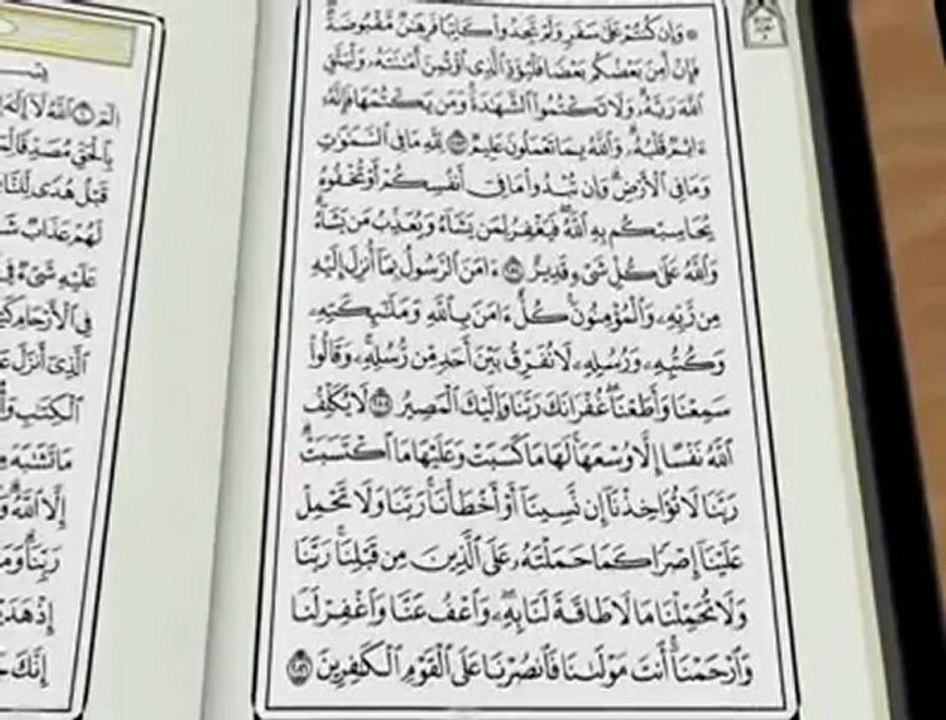 ۞ وَإِن كُنتُمْ عَلَىٰ سَفَرٍ وَلَمْ تَجِدُوا۟ كَاتِبًا فَرِهَـٰنٌ مَّقْبُوضَةٌ ۖ
فَإِنْ أَمِنَ بَعْضُكُم بَعْضًا فَلْيُؤَدِّ ٱلَّذِى ٱؤْتُمِنَ أَمَـٰنَتَهُۥ وَلْيَتَّقِ
ٱللَّهَ رَبَّهُۥ ۗ وَلَا تَكْتُمُوا۟ ٱلشَّهَـٰدَةَ ۚ وَمَن يَكْتُمْهَا فَإِنَّهُۥٓ
ءَاثِمٌ قَلْبُهُۥ ۗ وَٱللَّهُ بِمَا تَعْمَلُونَ عَلِيمٌ ٢٨٣ لِّلَّهِ مَا فِى ٱلسَّمَـٰوَٰتِ
وَمَا فِى ٱلْأَرْضِ ۗ وَإِن تُبْدُوا۟ مَا فِىٓ أَنفُسِكُمْ أَوْ تُخْفُوهُ
يُحَاسِبْكُم بِهِ ٱللَّهُ ۖ فَيَغْفِرُ لِمَن يَشَآءُ وَيُعَذِّبُ مَن يَشَآءُ ۗ
وَٱللَّهُ عَلَىٰ كُلِّ شَىْءٍ قَدِيرٌ ٢٨٤ ءَامَنَ ٱلرَّسُولُ بِمَآ أُنزِلَ إِلَيْهِ
مِن رَّبِّهِۦ وَٱلْمُؤْمِنُونَ ۚ كُلٌّ ءَامَنَ بِٱللَّهِ وَمَلَـٰٓئِكَتِهِۦ
وَكُتُبِهِۦ وَرُسُلِهِۦ لَا نُفَرِّقُ بَيْنَ أَحَدٍ مِّن رُّسُلِهِۦ ۚ وَقَالُوا۟
سَمِعْنَا وَأَطَعْنَا ۖ غُفْرَانَكَ رَبَّنَا وَإِلَيْكَ ٱلْمَصِيرُ ٢٨٥ لَا يُكَلِّفُ
ٱللَّهُ نَفْسًا إِلَّا وُسْعَهَا ۚ لَهَا مَا كَسَبَتْ وَعَلَيْهَا مَا ٱكْتَسَبَتْ ۗ
رَبَّنَا لَا تُؤَاخِذْنَآ إِن نَّسِينَآ أَوْ أَخْطَأْنَا ۚ رَبَّنَا وَلَا تَحْمِلْ
عَلَيْنَآ إِصْرًا كَمَا حَمَلْتَهُۥ عَلَى ٱلَّذِينَ مِن قَبْلِنَا ۚ رَبَّنَا
وَلَا تُحَمِّلْنَا مَا لَا طَاقَةَ لَنَا بِهِۦ ۖ وَٱعْفُ عَنَّا وَٱغْفِرْ لَنَا
وَٱرْحَمْنَآ ۚ أَنتَ مَوْلَىٰنَا فَٱنصُرْنَا عَلَى ٱلْقَوْمِ ٱلْكَـٰفِرِينَ ٢٨٦
الٓمٓ ١ ٱللَّهُ لَآ إِلَـٰهَ
بِٱلْحَقِّ مُصَدِّقًا لِّمَا
قَبْلُ هُدًى لِّلنَّاسِ
لَهُمْ عَذَابٌ
عَلَيْهِ شَىْءٌ فِى
فِى ٱلْأَرْحَامِ
ٱلَّذِىٓ أَنزَلَ
ٱلْكِتَـٰبِ
مَا تَشَـٰبَهَ
إِلَّا ٱللَّهُ ۗ
رَبِّنَا ۗ وَمَا
إِذْ هَدَيْتَنَا
إِنَّكَ